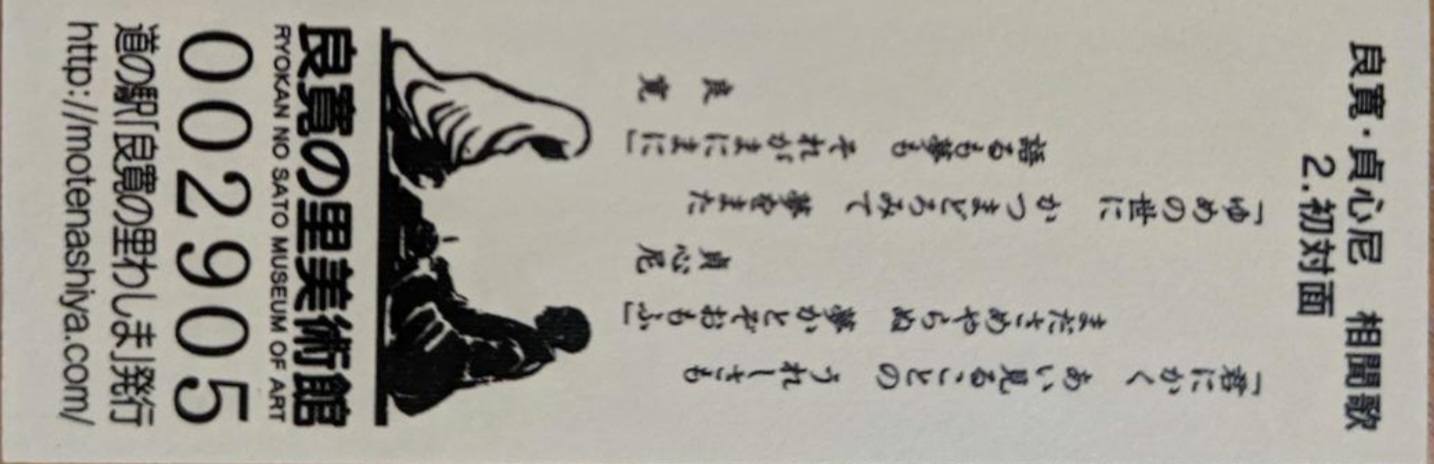 良寛・貞心尼　相聞歌
2.初対面
「君にかく　あい見ることの　うれしさも
まださめやらぬ　夢かとぞおもふ」
貞心尼
「ゆめの世に　かつまどろみて　夢をまた
語るも夢も　それがまにまに」
良寛
良寛の里美術館
RYOKAN NO SATO MUSEUM OF ART
002905
道の駅「良寛の里わしま」発行
http://motenashiya.com/